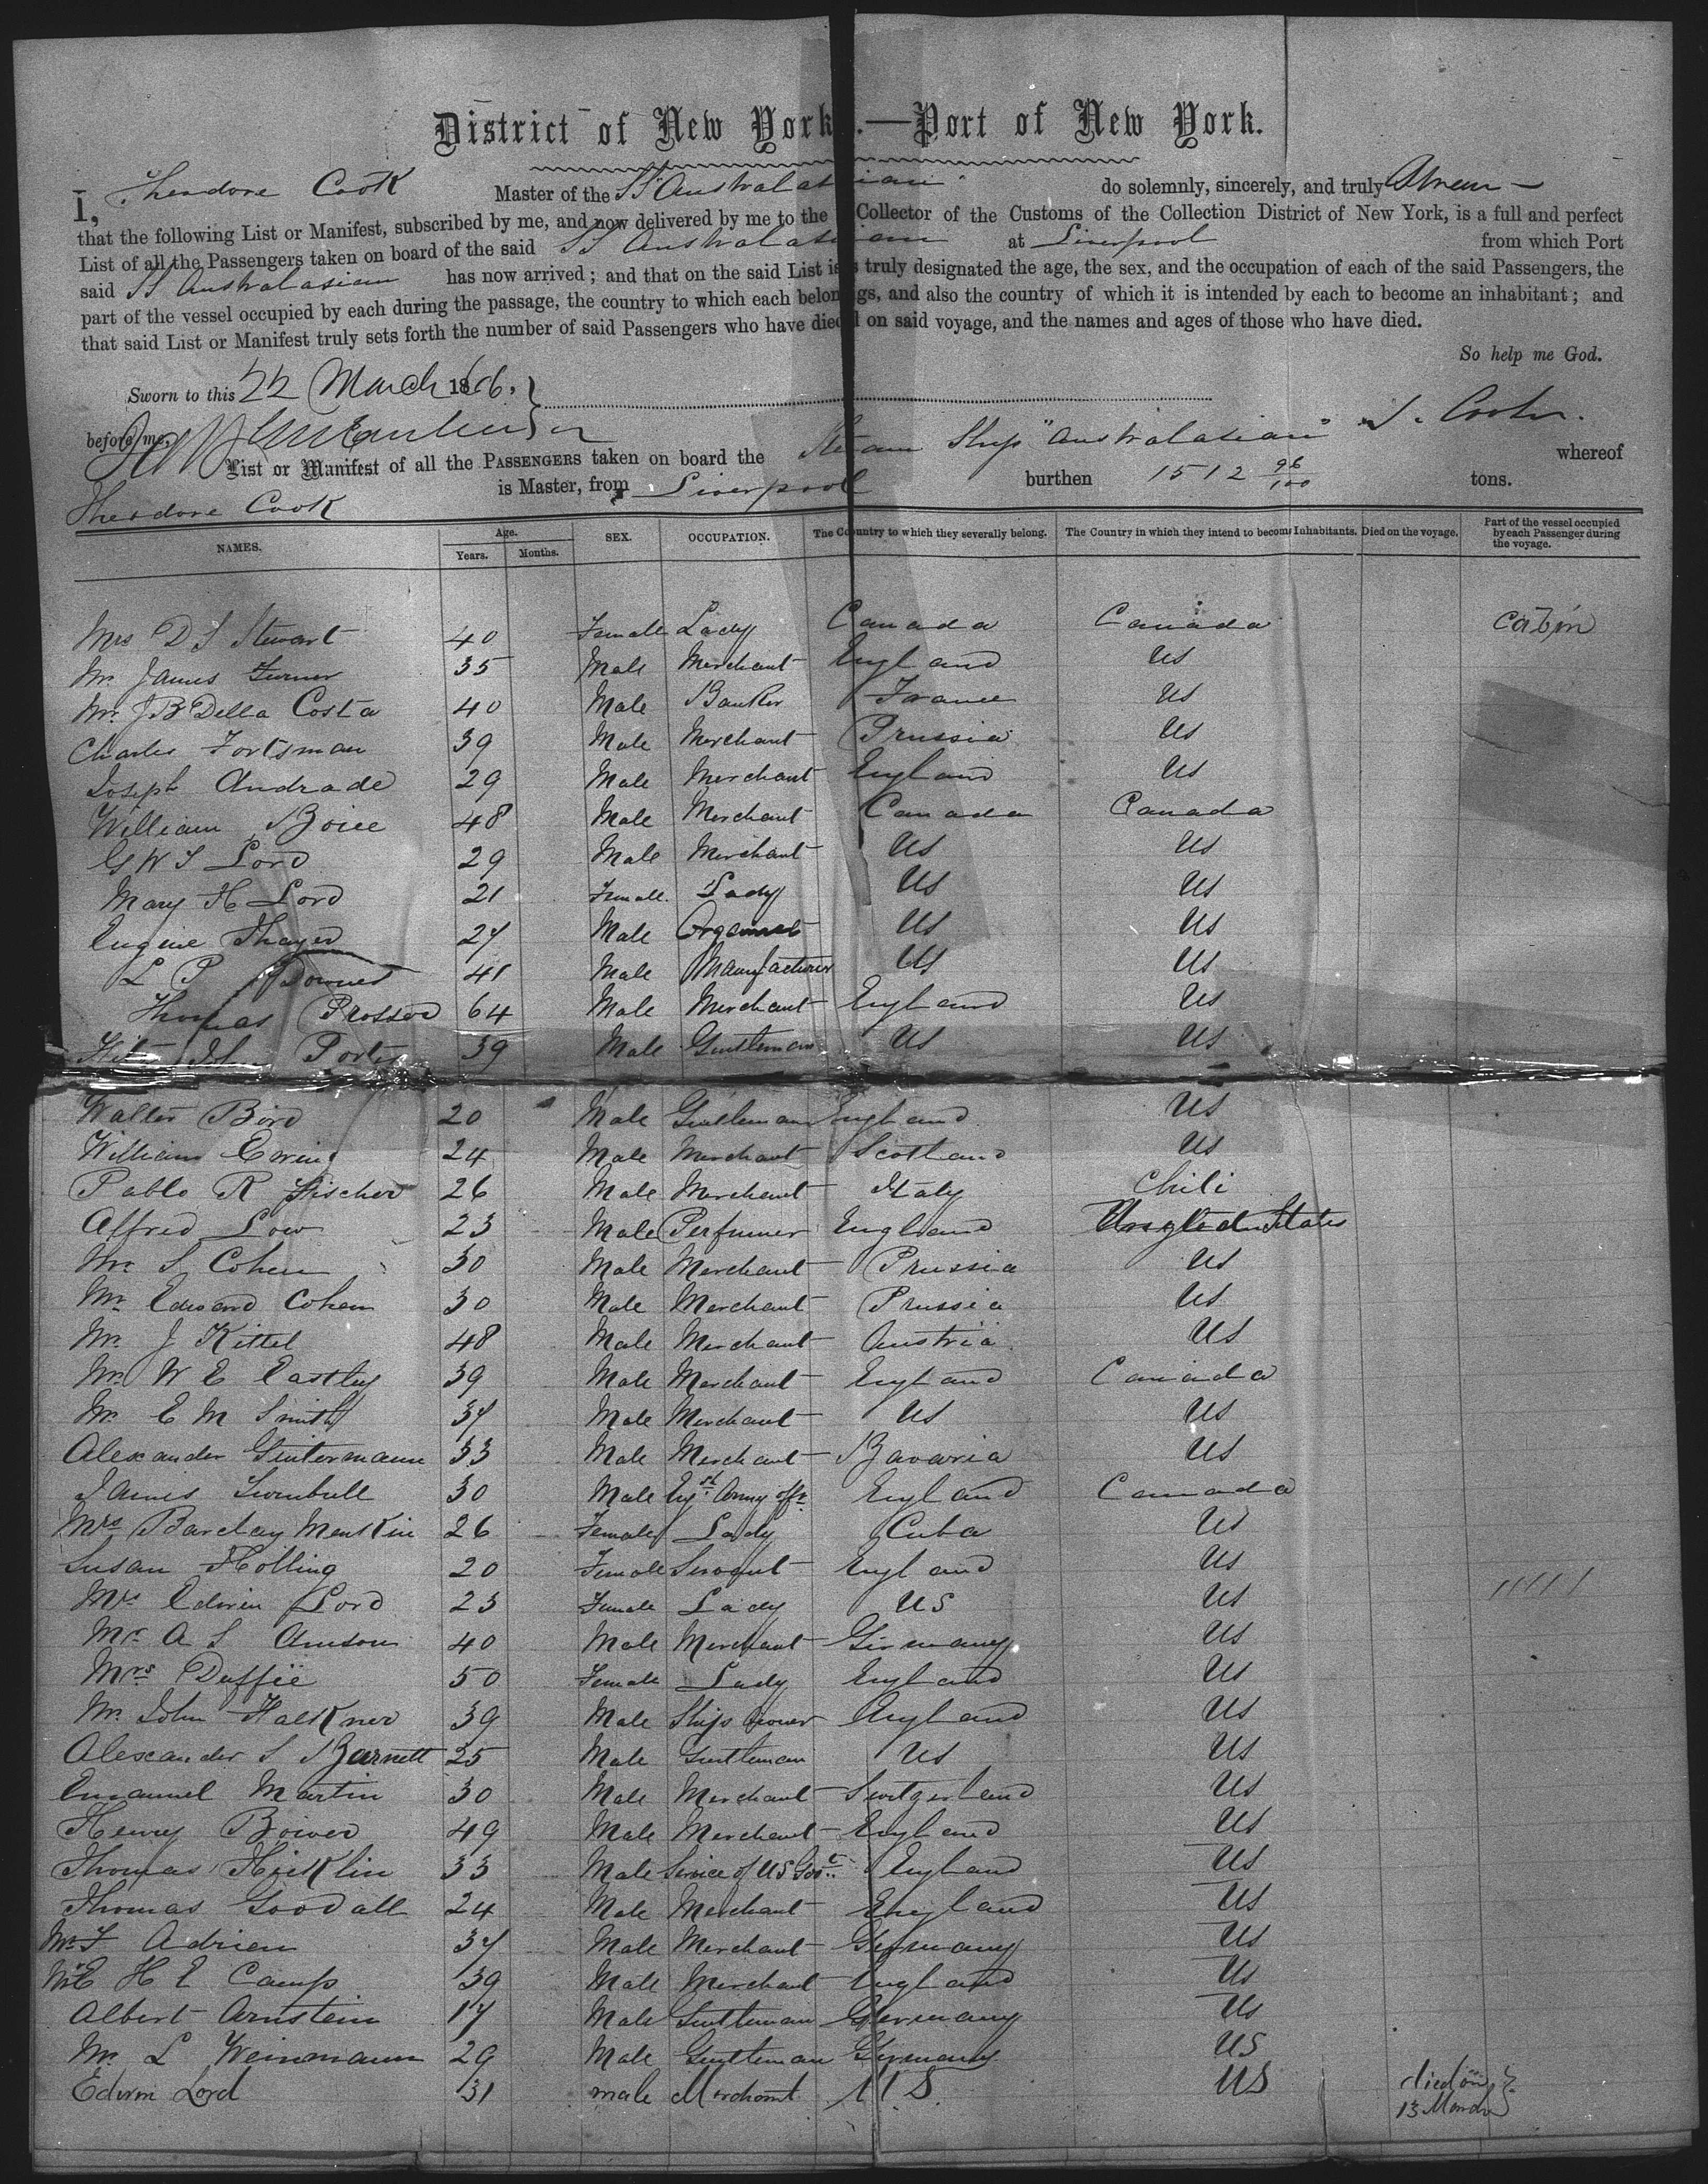 District of New York.—Port of New York.
I, Theodore Cook Master of the SS "Australasian" do solemnly, sincerely, and truly Swear—
that the following List or Manifest, subscribed by me, and now delivered by me to the Collector of the Customs of the Collection District of New York, is a full and perfect
List of all the Passengers taken on board of the said SS Australasian at Liverpool from which Port
said SS Australasian has now arrived; and that on the said List is truly designated the age, the sex, and the occupation of each of the said Passengers, the
part of the vessel occupied by each during the passage, the country to which each belongs, and also the country of which it is intended by each to become an inhabitant; and
that said List or Manifest truly sets forth the number of said Passengers who have died on said voyage, and the names and ages of those who have died.
So help me God.
Sworn to this 22 March 1866,
before me,
List or Manifest of all the PASSENGERS taken on board the Steam Ship "Australasian" whereof
Theodore Cook is Master, from Liverpool burthen 1512 96/100 tons.
NAMES. Age. Years. Months. SEX. OCCUPATION. The Country to which they severally belong. The Country in which they intend to become Inhabitants. Died on the voyage. Part of the vessel occupied by each Passenger during the voyage.
Mrs D S Stewart 40 Female Lady Canada Canada Cabin
Mr James Turner 35 Male Merchant England US
Mr J B Della Costa 40 Male Banker France US
Charles Fortsman 39 Male Merchant Prussia US
Joseph Andrade 29 Male Merchant England US
William Boice 48 Male Merchant Canada Canada
G W S Lord 29 Male Merchant US US
Mary H Lord 21 Female Lady US US
Eugene Thayer 27 Male Organist US US
L P Downes 41 Male Manufacturer US US
Thomas Prosser 64 Male Merchant England US
John Porter 39 Male Gentleman US US
Walter Bird 20 Male Gentleman England US
William Ewing 24 Male Merchant Scotland US
Pablo R Fischer 26 Male Merchant Italy Chili
Alfred Low 23 Male Perfumer England United States
Mr S Cohen 30 Male Merchant Prussia US
Mr Edward Cohen 30 Male Merchant Prussia US
Mr J Kittel 48 Male Merchant Austria US
Mr W E Eastley 39 Male Merchant England Canada
Mr E M Smith 37 Male Merchant US US
Alexander Guitermann 33 Male Merchant Bavaria US
James Turnbull 30 Male Army offr England Canada
Mrs Barclay Menskin 26 Female Lady Cuba US
Susan Holling 20 Female Servant England US
Mrs Edwin Lord 23 Female Lady US US
Mr A S Amson 40 Male Merchant Germany US
Mrs Duffie 50 Female Lady England US
Mr John Falkner 39 Male Ships owner England US
Alexander S Barnett 25 Male Gentleman US US
Emanuel Martin 30 Male Merchant Switzerland US
Henry Bower 49 Male Merchant England US
Thomas Hicklin 33 Male Service of US Govt England US
Thomas Goodall 24 Male Merchant England US
Mr F Adrien 37 Male Merchant Germany US
Mr H E Camp 39 Male Merchant England US
Albert Arnstein 17 Male Gentleman Germany US
Mr L Weinmann 29 Male Gentleman Germany US
Edwin Lord 31 male Merchant US US died on 13 March